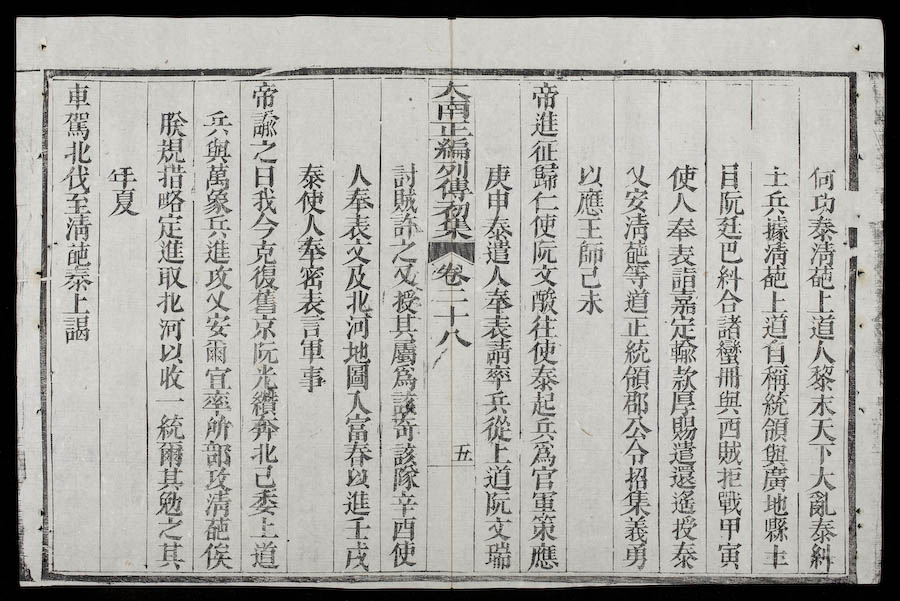 何功泰清葩上道人黎末天下大亂泰糾
土兵據清葩上道自稱統領與廣地縣土
目阮廷巴糾合諸蠻冊與西賊拒戰甲寅
使人奉表詣嘉定輸款厚賜遣還遙授泰
乂安清葩等道正統領郡公令招集義勇
以應王師己未
帝進征歸仁使阮文𨢇往使泰起兵爲官軍策應
庚申泰遣人奉表請率兵從上道阮文瑞
大南正編列傳初集 卷二十八 五
討賊許之又授其屬爲該奇該隊辛酉使
人奉表文及北河地圖入富春以進壬戌
泰使人奉密表言軍事
帝諭之曰我今克復舊京阮光纘奔北已委上道
兵與萬象兵進攻乂安爾宜率所部攻清葩俟
朕規措略定進取北河以收一統爾其勉之其
年夏
車駕北伐至清葩泰上謁